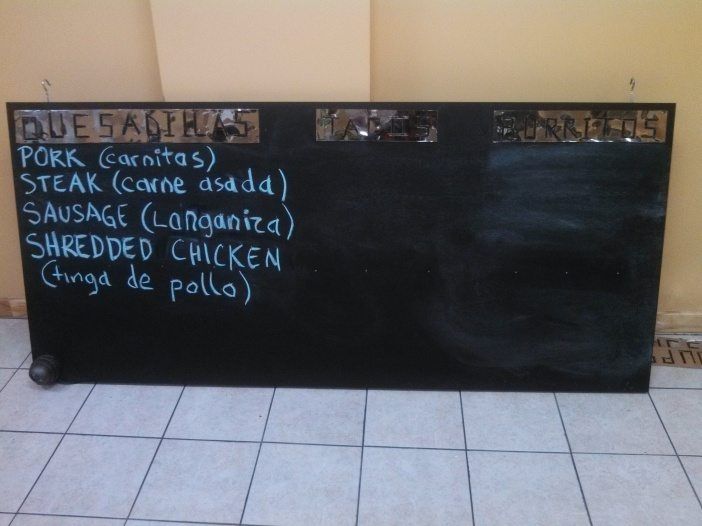 QUESADILLAS TACOS BURRITOS
PORK (carnitas)
STEAK (carne asada)
SAUSAGE (Longaniza)
SHREDDED CHICKEN
(tinga de pollo)